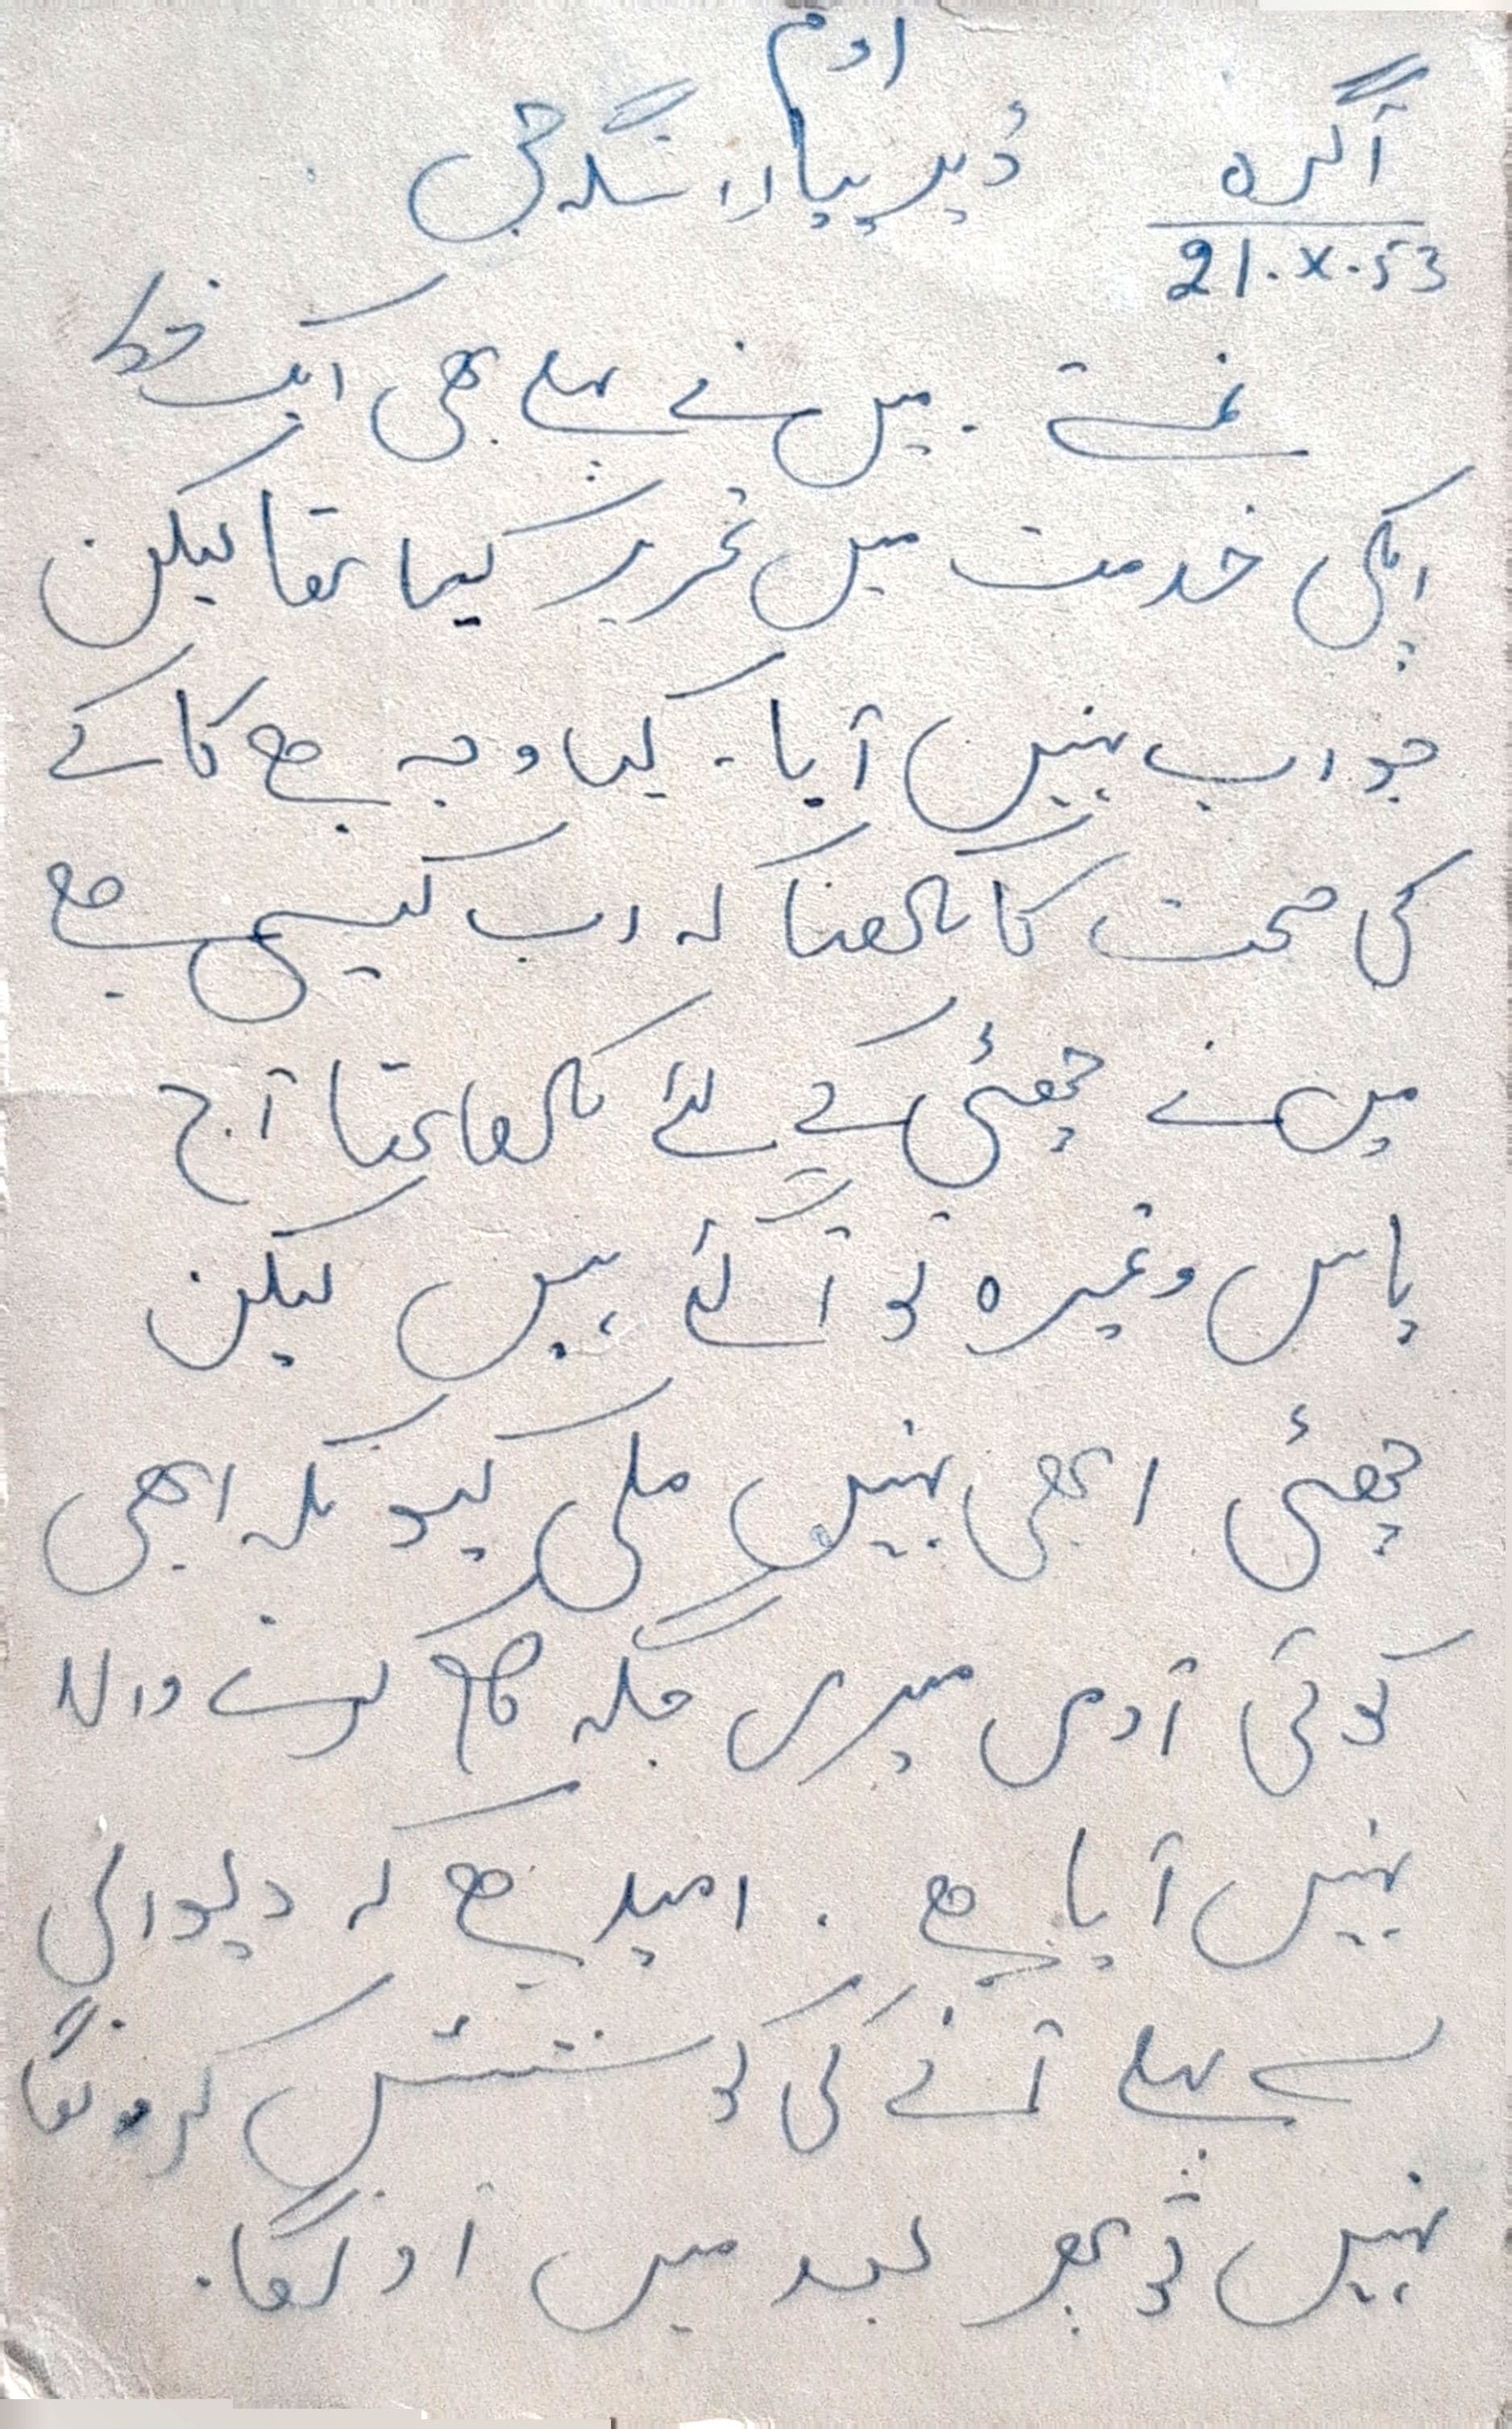 اوم
آگرہ
21.X.53
ڈیر پیارا سنگھ جی
نمستے . میں نے پہلے بھی ایک خط
اپکی خدمت میں تحریر کیا تھا لیکن
جواب نہیں آیا - کیا وجہ ہے کاکے
کی صحت کا لکھنا کہ اب کیسی ہے
میں نے چھٹی کے لئے لکھا تھا آج
پاس وغیرہ تو آگئے ہیں لیکن
چھٹی ابھی نہیں ملی کیونکہ ابھی
کوئی آدمی میری جگہ کام کرنے والا
نہیں آیا ہے . امید ہے کہ دیوالی
سے پہلے آنے کی کوشش کرونگا
نہیں تو پھر بعد میں اونگا .